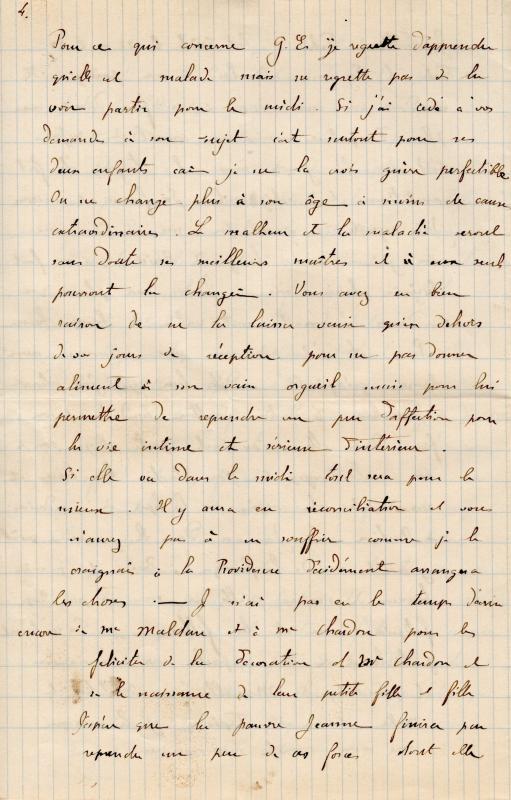 4.
Pour ce qui concerne G. Es je regrette d'apprendre
qu'elle est malade mais ne regrette pas de la
voir partir pour le midi. Si j'ai cédé à vos
demandes à son sujet c'est surtout pour ses
deux enfants car je ne la crois guère perfectible
On ne change plus à son âge à moins de cause
extraordinaires. Le malheur et la maladie seront
sans doute ses meilleurs maîtres et à eux seuls
pourront la changer. Vous avez eu bien
raison de ne la laisser venir qu'en dehors
de vos jours de réception pour ne pas donner
aliment à son vain orgueil mais pour lui
permettre de reprendre un peu d'affection pour
la vie intime et sérieuse d'intérieur.
Si elle va dans le midi tout sera pour le
mieux. Il y aura eu réconciliation et vous
n'aurez pas à en souffrir comme je le
craignais à la Providence décidément arrangea
les choses. — Je n'ai pas eu le temps d'écrire
encore à me Maldan et à me Chardon pour les
féliciter de la décoration de Mr Chardon et
de la naissance de leur petite fille et fille
J'espère que la pauvre Jeanne finira par
reprendre un peu de ses forces dont elle